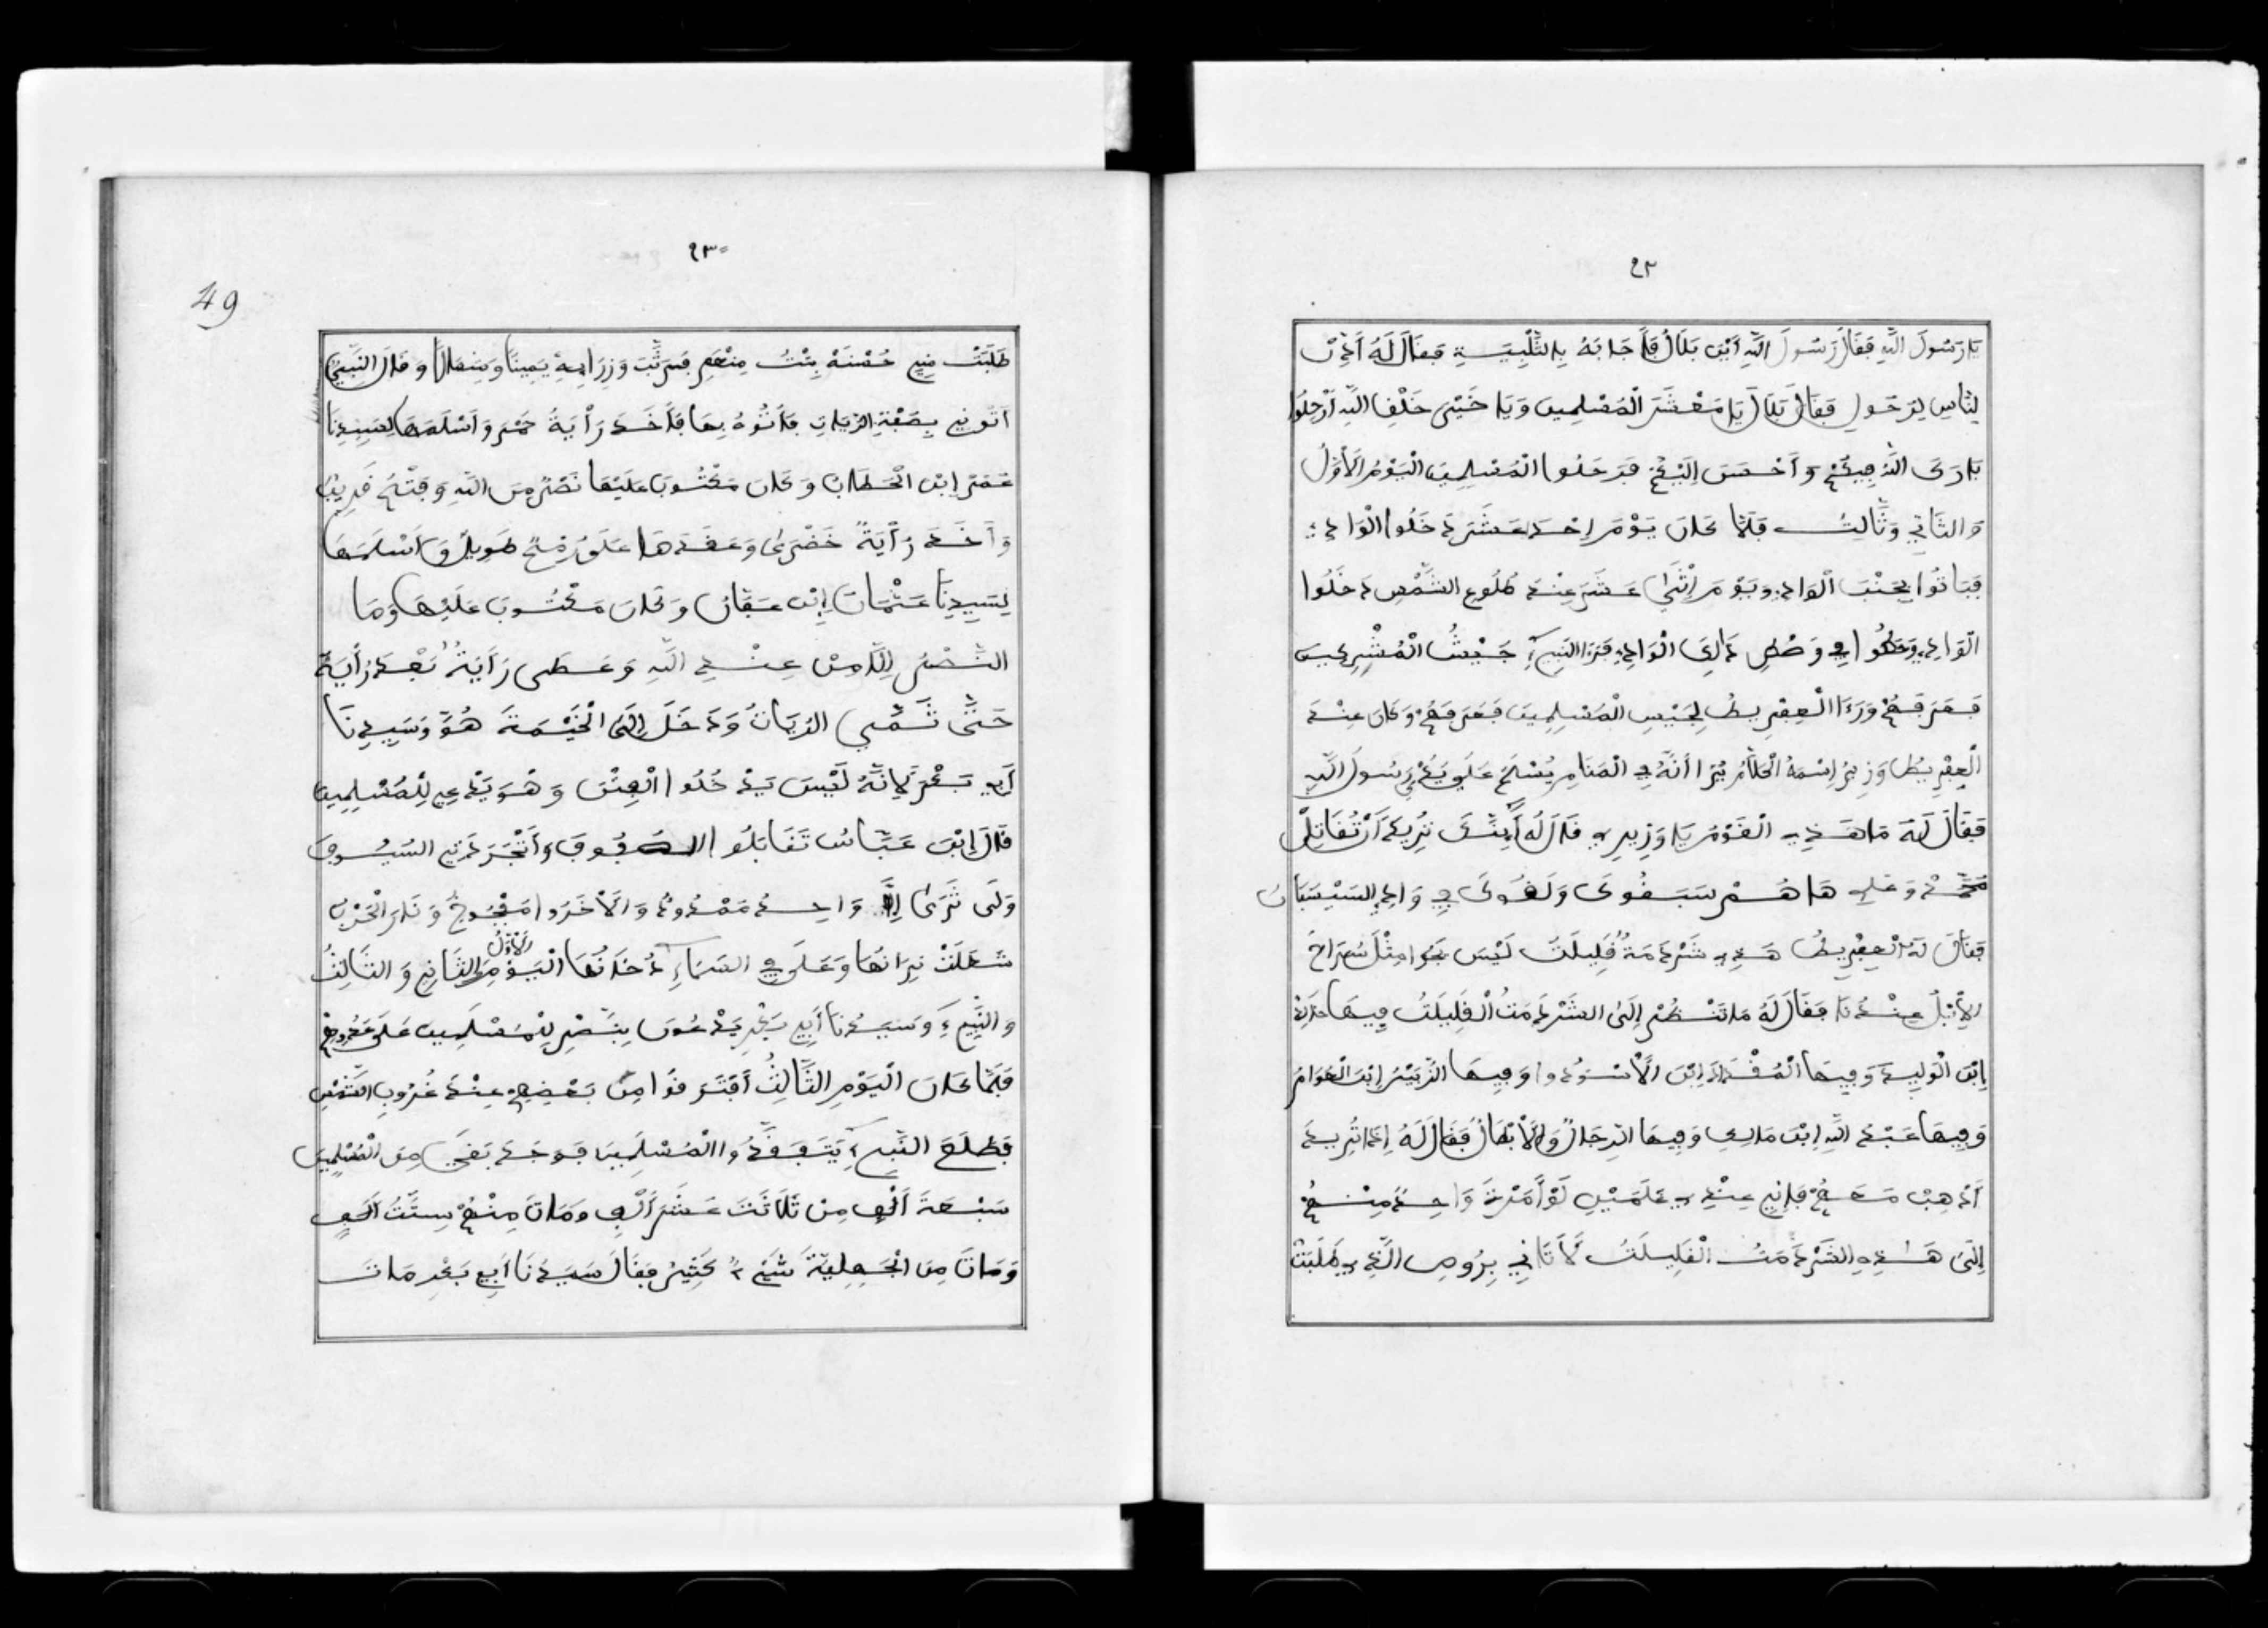 ٩٢
يَا رَسُولَ اللّٰهِ فَقَالَ رَسُولَ اللّٰهِ أَيْنَ بَلَالُ فَأَجَابَهُ بِالتَّلْبِيَةِ فَقَالَ لَهُ أَذِنْ
لِنَّاسِ لِرَحُولِ فَقَالَ بَلَالُ يَا مَعْشَرَ الْمُسْلِمِينَ وَيَا خَيْلَ خَلْفِ اللّٰهِ أَرْحِلُوا
بَارَكَ اللّٰهُ فِيكُمْ وَأَحْسَنَ إِلَيْكُمْ فَرَحَلُوا الْمُسْلِمِينَ الْيَوْمُ الْأَوَّلُ
وَالثَّانِي وَثَّالِثُ فَلَمَّا كَانَ يَوْمَ إِحْدَ عَشَرَ دَخَلُوا الْوَادِ
فَبَاتُوا بِجَنْبَ الْوَادِي وَيَوْمَ إِثْنَي عَشَرَ عِنْدَ طُلُوعِ الشَّمْسِ دَخَلُوا
الْوَادِي وَحَطُّوا فِي وَصْطِ ذَالِكَ الْوَادِي فَرَءَا النَّبِيءِ جَيْشُ الْمُشْرِكِينَ
فَعَرَفَهُمْ وَرَءَا الْعِفْرِيطُ لِجَيْسِ الْمُسْلِمِينَ فَعَرَفَهُمْ وَكَانَ عِنْدَ
الْعِفْرِيطُ وَزِيرُ إِسْمَهُ يَرَا أَنَّهُ فِي الْمَنَامِ يُسْلَمُ عَلَى يَدَيْ رَسُولَ اللّٰهِ
فَقَالَ لَهُ مَا هَذِي الْقَوْمُ يَا وَزِيرِي قَالَ لَهُ تُرِيدُ أَنْ تُقَاتِلْ
مُحَمَّدْ وَعَلِي هَا هُمْ سَبَقُوكَ وَلَقُوكَ فِي وَادِ السَيْسَبَانُ
فَقَالَ لَهُ الْعِفْرِيطُ هَذِي شَرْدَمَةُ قَلِيلَةٌ لَيْسَ مِثْلَ سُرَاحُ
الْإِبِلُ عِنْدَنَا فَقَالَ لَهُ مَا تَنْظُرْ إِلَى الشَرْدَمَتُ الْقَلِيلَتُ فِيهَا خَالِدْ
إِبْنَ الْوَلِيدَ وَفِيهَا الْمُقْدَادَ إِبْنَ الْأَسْوَدُ وَفِيهَا الزُّبَيْرُ إِبْنَ الْعَوَامُ
وَفِيهَا عَبْدَ اللّٰهِ إِبْنَ مَالِكِ وَفِيهَا الرِّجَالُ وَالْأَبْطَالُ فَقَالَ لَهُ إِذَا تُرِيدَ
أَذْهِبْ مَعَهُمْ فَإِنِّي عِنْدِي عَلَمَيْنِ لَوْ أَمَرْتَ وَاحِدُ مِنْهُمْ
إِلَى هَذِهِ الشَّرْدَمَتُ الْقَلِيلَتُ لَأَتَانِي بِرُوسِ الَّذِي طَلَبَتْ
٩٣
49
طَلَبَتْ مِنِّي حُسْنَهْ بِنْتُ مِنْهُمِ فَرَتَّبَ وَزِرَائِهِ يَمِينًا وَشِمَالًا وَقَالَ النَّبِيُّ
أَتُونِي بِصَفْةِ الرَّيَاتِ فَأَتُوهُ بِهَا فَأَخَذَ رَأْيَةُ حَمْرَ وَأَسْلَمَهَا لِسَيِدِنَا
عُمَرَ إِبْنَ الْخَطَابُ وَكَانَ مَكْتُوبَ عَلَيْهَا نَصْرُ مِنَ اللّٰهِ وَفَتْحُ قَرِيبُ
وَأَخَذَ رَأْيَةً خَضْرَى وَعَقَدَهَا عَلَى رُمْحٌ طَوِيلٌ وَأَسْلَمَهَا
لِسَيِدِنَا عَثْمَانَ إِبْنَ عَفَّانُ وَكَانَ مَكْتُوبَ عَلَيْهَا وَمَا
النَّصْرُ إِلَّا مِنْ عِنْدِ اللّٰهِ وَعَطَى رَأَيَةُ بَعْدَ رَأْيَةً
حَتَّى تَمِّي الرَيَاتُ وَدَخَلَ إِلَى الْخَيْمَةَ هُوَ وَسَيِدِنَا
أَبِي بَكْرَ لِأَنَّهُ لَيْسَ يَدْخُلُوا الْفِتْنَ وَهْوَ يَدْعِي لِلْمُسْلِمِينَ
قَالَ إِبْنَ عَبَّاسُ تَقَابَلُوا الصُفُوفَ وَأَنْجَرَدَتِ السُيُوفَ
وَلَى تَرَى إِلَّا وَاحِدُ مَمْدُودُ وَالْأَخَرُ مَفْجُوجُ وَنَارَ الْحَرْبُ
شَعَلَتْ نِيرَانُهَا وَعَلَى فِي السَمَاءِ دُخَانُهَا الْيَوْمِ الْأَوَّلُ وَالثَّانِي وَالثَّالِثُ
وَالنَّبِيءِ وَسَيِدُنَا أَبِي بَكْرِ يَدْعُونَ بِنَّصْرِ لِلْمُسْلِمِينَ عَلَى عَدُوِهِمْ
فَلَمَّا كَانَ الْيَوْمِ الثَّالِثُ أَفْتَرَقُوا مِنْ بَعْضِهِمْ عِنْدَ غُرُوبِ الشَّمْسِ
فَطَلَعَ النَّبِيءِ يَتَفَقَّدُ الْمُسْلِمِينَ فَوَجَدَ بَقِيَ مِنَ الْمُسْلِمِينَ
سَبْعَةَ أَلْفِ مِنْ ثَلَاثَتَ عَشَرَ أَلْفِ وَمَاتَ مِنْهُمْ سِتَّتُ أَلَفٍ
وَمَاتَ مِنَ الْجَهِلِيَّةَ شَيْءٌ كَثِيرُ فَقَالَ سَيِدُنَا أَبِي بَكْرِ مَاتَ